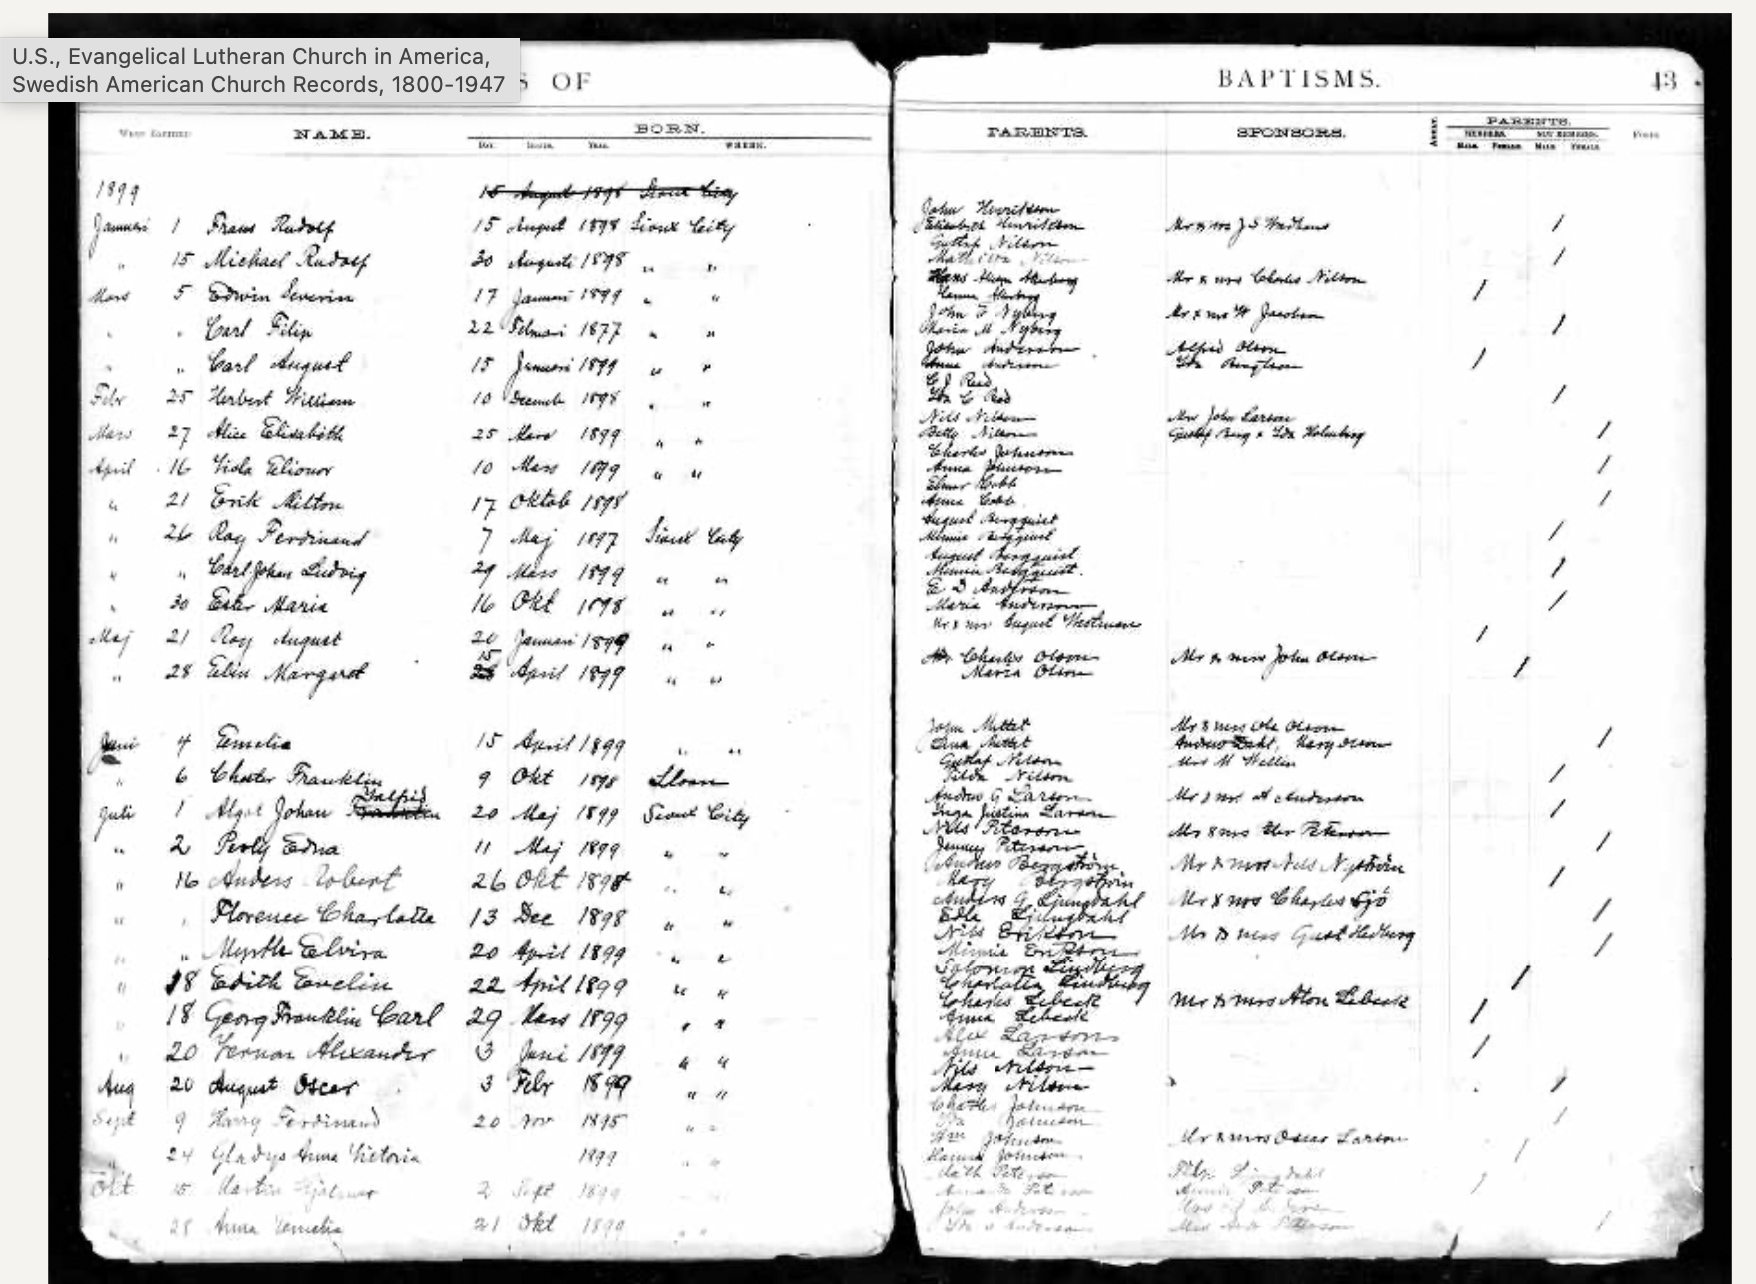 U.S., Evangelical Lutheran Church in America,
Swedish American Church Records, 1800-1947
S OF
BAPTISMS. 43
NAME. BORN. WHERE.
PARENTS. SPONSORS. PARENTS.
1899 15 August 1898 Sioux City
Januari 1 Frans Rudolf 15 August 1898 Sioux City
" 15 Michael Rudolf 30 Augusti 1898 " "
Mars 5 Edwin Severin 17 Januari 1899 " "
" " Carl Filip 22 Februari 1877 " "
" " Carl August 15 Januari 1899 " "
Febr 25 Herbert William 10 Decemb 1898 " "
Mars 27 Alice Elisabeth 25 Mars 1899 " "
April 16 Viola Elionor 10 Mars 1899 " "
" 21 Erik Milton 17 Oktob 1898
" 26 Roy Ferdinand 7 Maj 1897 Sioux City
" " Carl Johan Ludvig 29 Mars 1899 " "
" 30 Ester Maria 16 Okt 1898 " "
Maj 21 Roy August 20 Januari 1899 " "
" 28 Elin Margaret 15 April 1899 " "
Juni 4 Emelia 15 April 1899 " "
" 6 Chester Franklin 9 Okt 1898 Sloan
Juli 1 Algot Johan 20 Maj 1899 Sioux City
" 2 Perly Edna 11 Maj 1899 " "
" 16 Anders Robert 26 Okt 1898 " "
" " Florence Charlotte 13 Dec 1898 " "
" " Myrtle Elvira 20 April 1899 " "
" 18 Edith Evelin 22 April 1899 " "
" 18 Georg Franklin Carl 29 Mars 1899 " "
" 20 Vernon Alexander 3 Juni 1899 " "
Aug 20 August Oscar 3 Febr 1899 " "
Sept 9 Harry Ferdinand 20 Nov 1895 " "
24 Gladys Anna Victoria 1899 " "
Okt 15 Martin Hjalmar 2 Sept 1899
28 Anna Emelia 21 Okt 1899 " "
John Henrikson
Elisabeth Henrikson Mr & Mrs J S
Gustaf Nilson
Mathilda Nilson
Hans Mr & Mrs Charles Nilson
Hanna
John F Nyberg Mr & Mrs Jacobson
Maria M Nyberg
John Anderson Alfred Olson
Anna Anderson Ida
C J Reed
Ida C Reed
Nils Nilson Mrs John Larson
Betty Nilson Gustaf Berg & Ida Holmberg
Charles Johnson
Anna Johnson
Elmer Cobb
Anna Cobb
August Bergquist
Minnie Bergquist
August Bergquist
Minnie Bergquist.
E D Anderson
Maria Anderson
Mr & Mrs August
Charles Olson Mr & Mrs John Olson
Maria Olson
John Mittet Mr & Mrs Ole Olson
Lina Mittet Andrew Dahl, Mary Olson
Gustaf Nilson Mrs M Wallin
Tilda Nilson
Andrew G Larson Mr & Mrs A Anderson
Inga Justina Larson
Nils Peterson Mr & Mrs Peterson
Jenny Peterson
Andrew Bergström Mr & Mrs Nils Nyström
Mary Bergström
Anders G Ljungdahl Mr & Mrs Charles Sjö
Edla Ljungdahl
Nils Erikson Mr & Mrs Gust Hedberg
Minnie Erikson
Salomon Lindberg
Charlotta Lindberg
Charles Lebeck Mr & Mrs Aton Lebeck
Anna Lebeck
Alex Larson
Anna Larson
Nils Nilson
Mary Nilson
Charles Johnson
Johnson
Wm Johnson Mr & Mrs Oscar Larson
Hanna Johnson
Peterson Ljungdahl
Peterson Annie Peterson
John Anderson
Ida Anderson Peterson